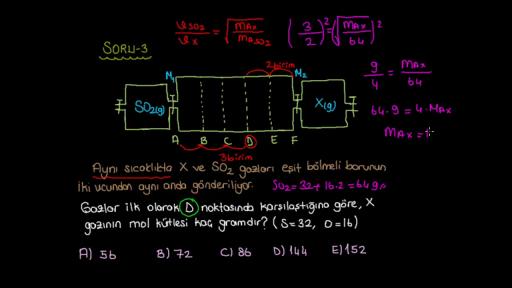 SORU-3
𝒱SO₂ / 𝒱x = √(MAx / MASO₂)
(3/2)² = (√(MAx / 64))²
9/4 = MAx/64
64·9 = 4·MAx
MAx = 1
2 birim
M₁
M₂
SO₂(g)
X(g)
A B C D E F
3 birim
Aynı sıcaklıkta X ve SO₂ gazları eşit bölmeli borunun
iki ucundan aynı anda gönderiliyor. SO₂=32+16·2=64g
Gazlar ilk olarak D noktasında karşılaştığına göre, X
gazının mol kütlesi kaç gramdır? (S=32, O=16)
A) 56 B) 72 C) 86 D) 144 E) 152